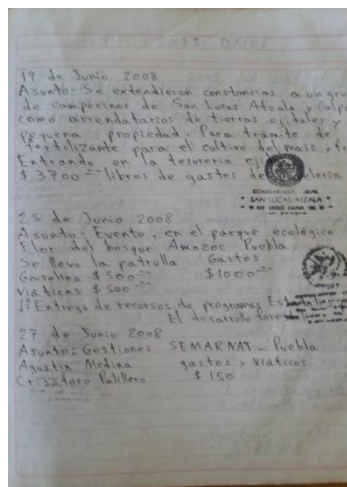 19 de Junio 2008
Asunto: Se extendieron constancias a un gru
de campesinos de San Lucas Atzala y Calp
como arrendatarios de tierras ejidales y
pequeña propiedad. Para trámite de
fertilizante para el cultivo del maíz y f
Entrando en la tesoreria eji
$ 3700 libres de gastos de
SAN LUCAS ATZALA
25 de Junio 2008
Asunto: Evento, en el parque ecológico
Flor del bosque Amozoc Puebla
Se llevo la patrulla Gastos
Gasolina $ 500 $ 1000
Viáticos $ 500
Entrega de recursos de programas
El desarrollo
27 de Junio 2008
Asunto: Gestiones SEMARNAT - Puebla
Agustin Medina gastos y viáticos
Palillero $ 150